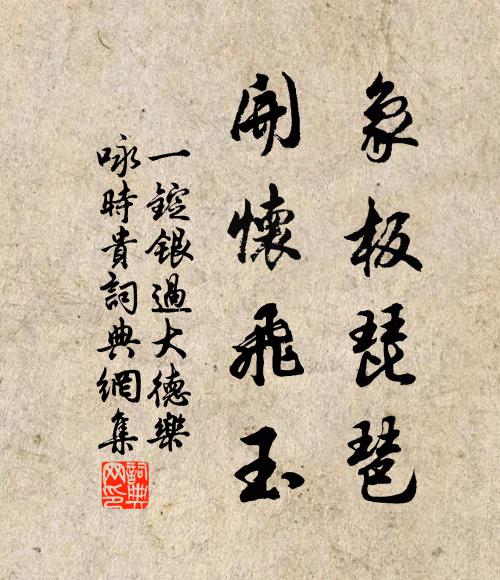 象板琵琶
開懷飛玉
一錠銀過大德樂
咏時貴詞典網集
詞典網印